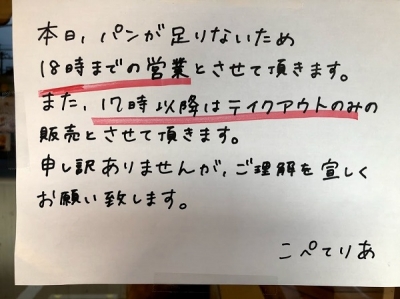 本日、パンが足りないため
18時までの営業とさせて頂きます。
また、17時以降はテイクアウトのみの
販売とさせて頂きます。
申し訳ありませんが、ご理解を宜しく
お願い致します。
こぺてりあ